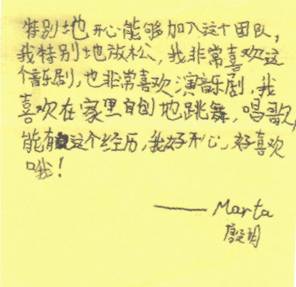 特别地开心能够加入这个团队，
我特别地放松，我非常喜欢这
个音乐剧，也非常喜欢演音乐剧，我
喜欢在家里自由地跳舞，唱歌，
能有这个经历，我好开心，好喜欢
哦！
—— Marta